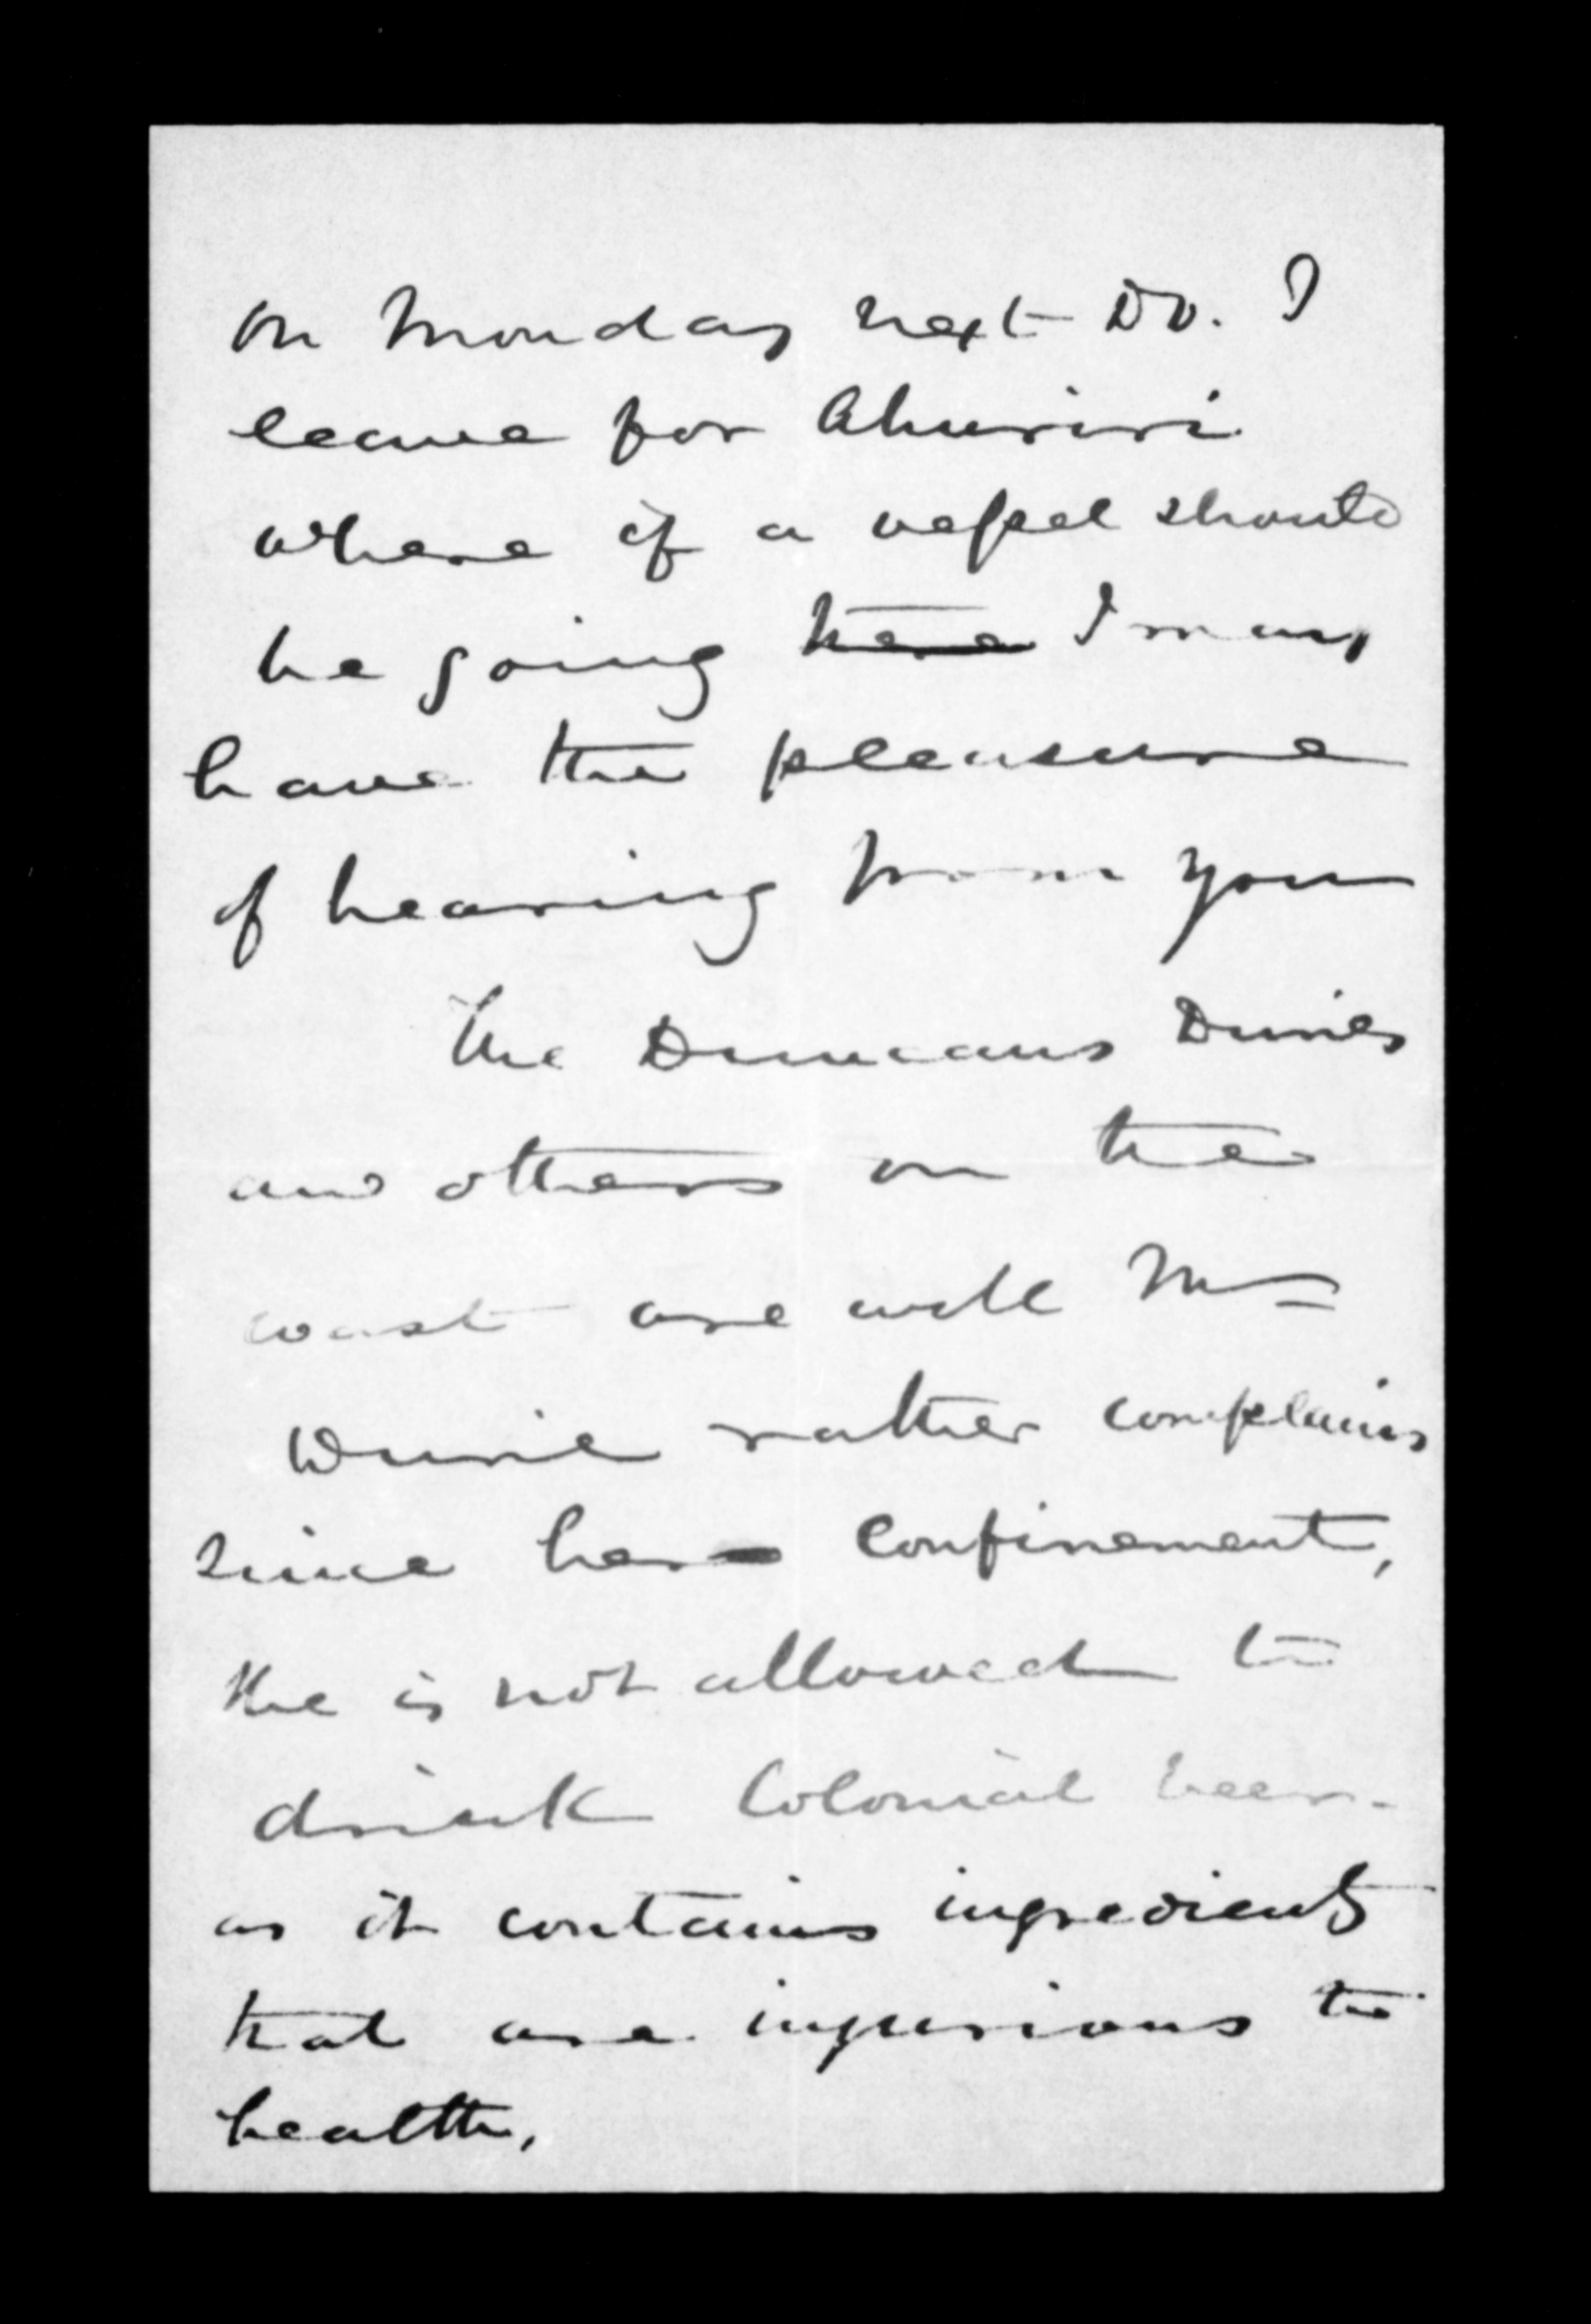 On Monday next DV. I
leave for Ahuriri
where if a vessel should
be going here I may
have the pleasure
of hearing from you
The Duncans Duries
and others on the
coast are well Mrs
Durie rather complains
since her confinement,
she is not allowed to
drink Colonial beer.
as it contains ingredients
that are injurious to
health,